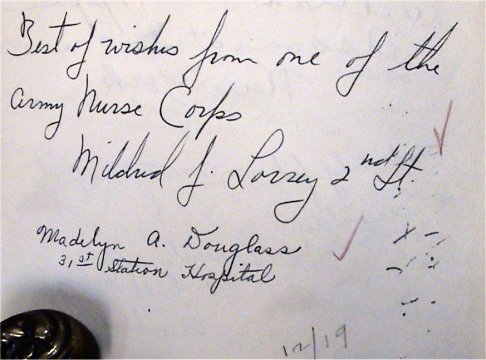 Best of wishes from one of the
Army Nurse Corps
Mildred J. Lorrey 2nd Lt.
Madelyn A. Douglass
31st Station Hospital
12/19